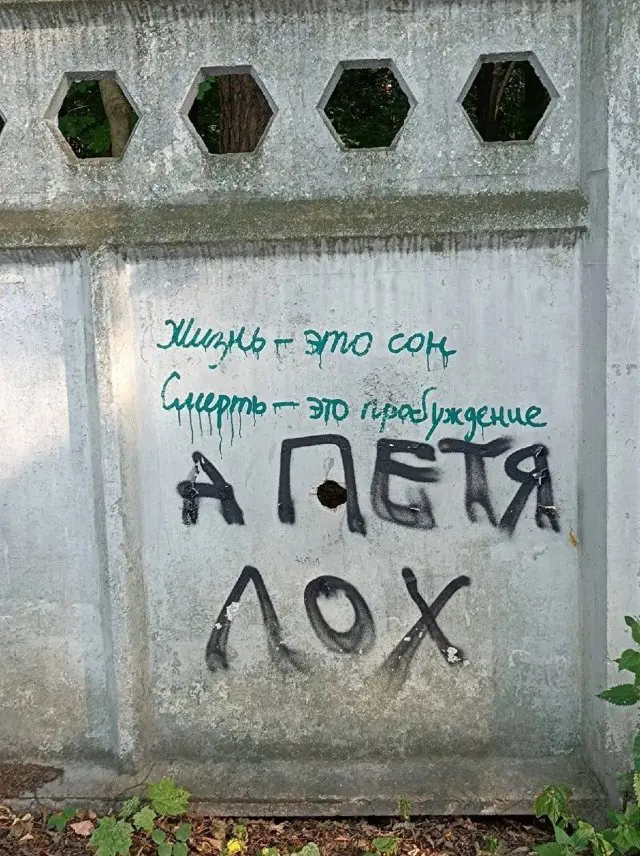 Жизнь – это сон
Смерть – это пробуждение
А ПЕТЯ
ЛОХ